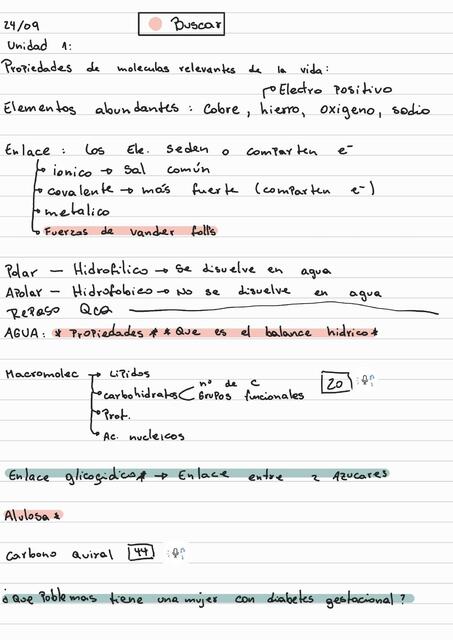 24/09
Buscar
Unidad 1:
Propiedades de moleculas relevantes de la vida:
Electro positivo
Elementos abundantes : Cobre, hierro, oxigeno, sodio
Enlace : Los Ele. seden o comparten e⁻
ionico → Sal común
covalente → más fuerte (comparten e⁻)
metalico
Fuerzas de vander falls
Polar — Hidrofilico → Se disuelve en agua
Apolar — Hidrofobico → No se disuelve en agua
Repaso QCA
AGUA: * Propiedades * * Que es el balance hidrico *
Macromolec → Lipidos
carbohidratos < nº de C
Grupos funcionales
20
Prot.
Ac. nucleicos
Enlace glicogidico * → Enlace entre 2 Azucares
Alulosa *
Carbono quiral 44
¿Que Poblemas tiene una mujer con diabetes gestacional?